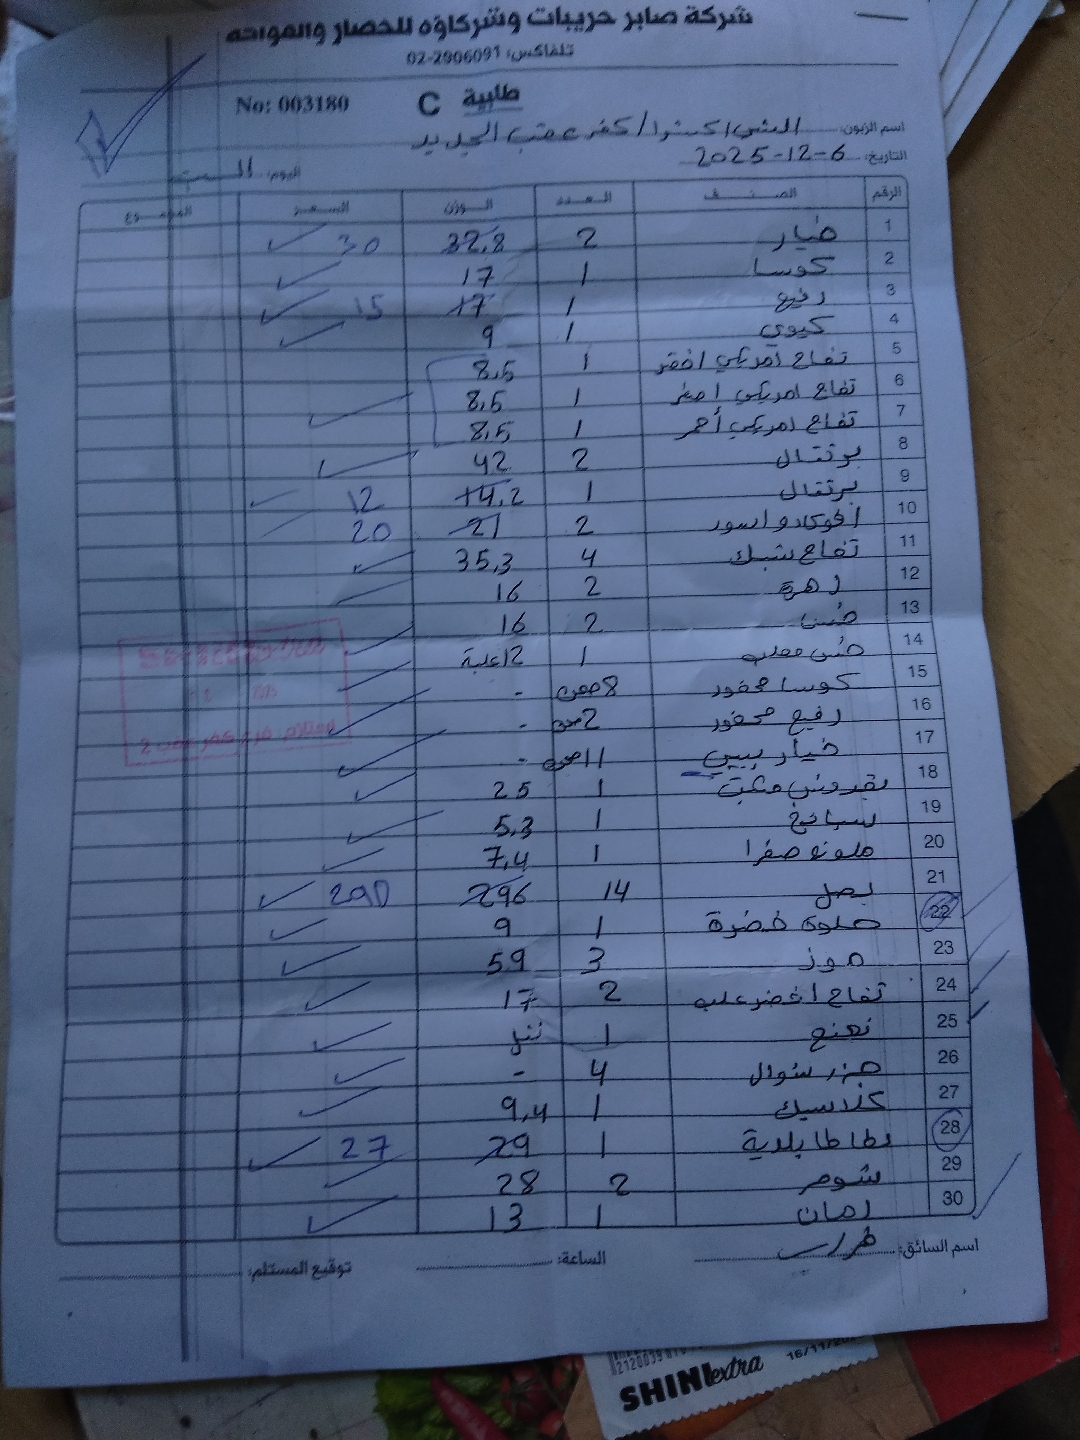 شركة صابر حريبات وشركاؤه للخضار والفواكه
تلفاكس: 02-2906091
No: 003180 C طلبية
اسم الزبون: الشني اكسترا / كفر عقب الجديد
التاريخ: 2025-12-6 اليوم: السبت
الرقم الصنف العدد الوزن السعر المجموع
1 خيار 2 32,8 30
2 كوسا 1 17
3 رفيع 1 17 15
4 كيوي 1 9
5 تفاح امريكي اخضر 1 8,5
6 تفاح امريكي اصفر 1 8,5
7 تفاح امريكي أحمر 1 8,5
8 برتقال 2 42
9 برتقال 1 14,2 12
10 افوكادو اسود 2 21 20
11 تفاح شبك 4 35,3
12 زهرة 2 16
13 خس 2 16
14 خس معلب 1 12علبة
15 كوسا محفور 8صحن -
16 رفيع محفور 2صحن -
17 خيار بيبي 11صحن -
18 بقدونس مكبت 1 25
19 سبانخ 1 5,3
20 ملونه صفرا 1 7,4
21 بصل 14 296 290
22 حلوة خضرة 1 9
23 موز 3 59
24 تفاح اخضر علب 2 17
25 نعنع 1
26 جزر شوال 4 -
27 كلاسيك 1 9,4
28 بطاطا بلدية 1 29 27
29 شومر 2 28
30 رمان 1 13
اسم السائق: الساعة: توقيع المستلم:
SHINI extra